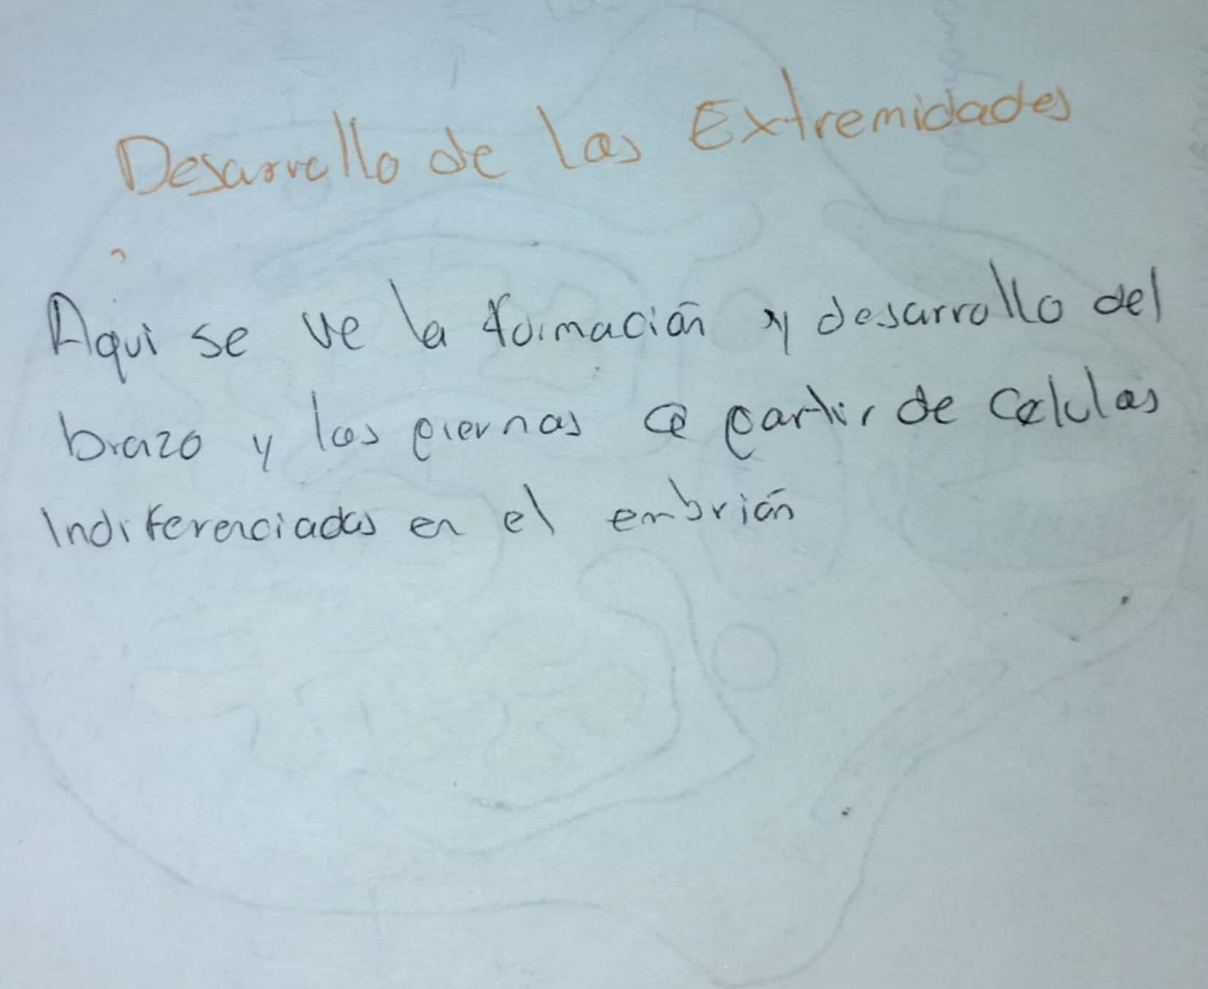 Desarrollo de las Extremidades
Aqui se ve la formación y desarrollo del
brazo y las piernas a partir de Celulas
Indiferenciadas en el embrión